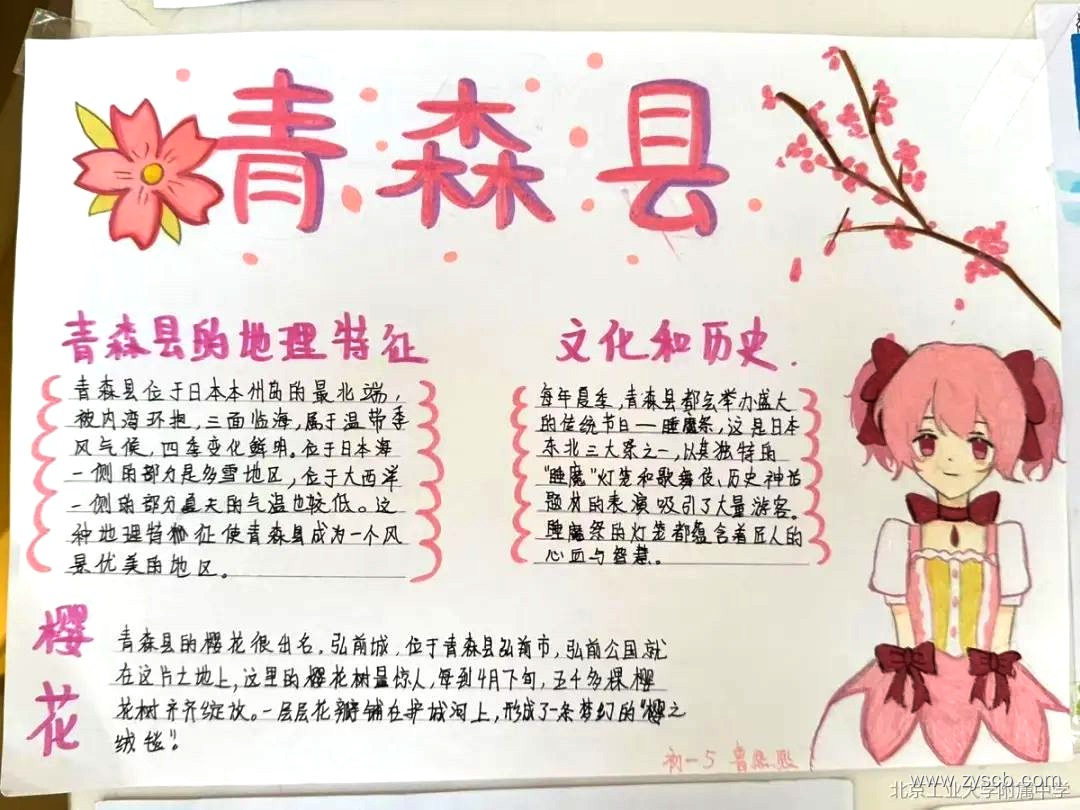 青森县
青森县的地理特征
青森县位于日本本州岛的最北端，
被内湾环抱，三面临海，属于温带季
风气候，四季变化鲜明。位于日本海
一侧的部分是多雪地区，位于大西洋
一侧的部分夏天的气温也较低。这
种地理特征使青森县成为一个风
景优美的地区。
文化和历史.
每年夏季，青森县都会举办盛大
的传统节日——睡魔祭，这是日本
东北三大祭之一，以其独特的
“睡魔”灯笼和歌舞伎、历史神话
题材的表演吸引了大量游客。
睡魔祭的灯笼都蕴含着匠人的
心血与智慧。
樱花
青森县的樱花很出名，弘前城，位于青森县弘前市，弘前公园就
在这片土地上，这里的樱花树量惊人，每到4月下旬，五4多棵樱
花树齐齐绽放。一层层花瓣铺在护城河上，形成了一条梦幻的“樱之
绒毯”。
初一5
www.zyscb.com
北京工业大学附属中学